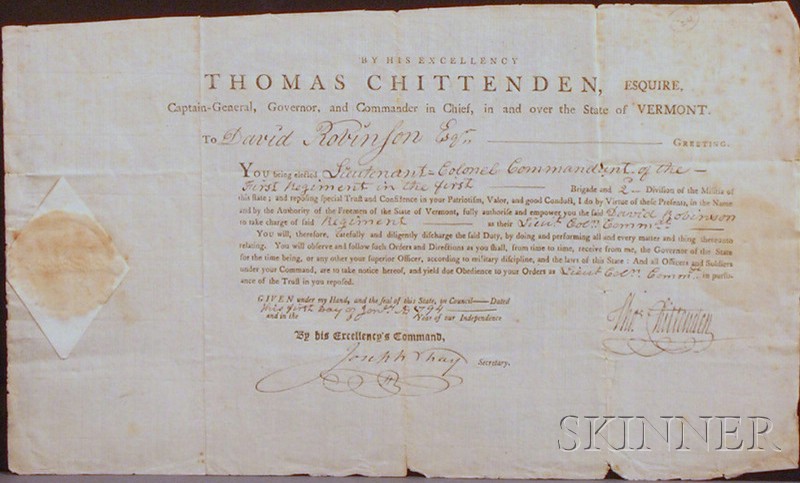 BY HIS EXCELLENCY
THOMAS CHITTENDEN, ESQUIRE,
Captain-General, Governor, and Commander in Chief, in and over the State of VERMONT.
To David Robinson Esqr. GREETING.
YOU being elected Lieutenant-Colonel Commandant of the
First Regiment in the first Brigade and 2 Division of the Militia of
this State; and reposing special Trust and Confidence in your Patriotism, Valor, and good Conduct, I do by Virtue of these Presents, in the Name
and by the Authority of the Freemen of the State of Vermont, fully authorise and empower you the said David Robinson
to take charge of said Regiment as their Lieut Coln. Commt.
YOU will, therefore, carefully and diligently discharge the said Duty, by doing and performing all and every matter and thing thereunto
relating. You will observe and follow such Orders and Directions as you shall, from time to time, receive from me, the Governor of the State
for the time being, or any other your Superior Officer, according to military discipline, and the laws of this State: And all Officers and Soldiers
under your Command, are to take notice hereof, and yield due Obedience to your Orders as Lieut Coln. Commt. in pursu-
ance of the Trust in you reposed.
GIVEN under my Hand, and the seal of this State, in Council Dated
this day of 1794
and in the Year of our Independence
By his Excellency's Command,
Thos Chittenden
Joseph Fay Secretary.
SKINNER